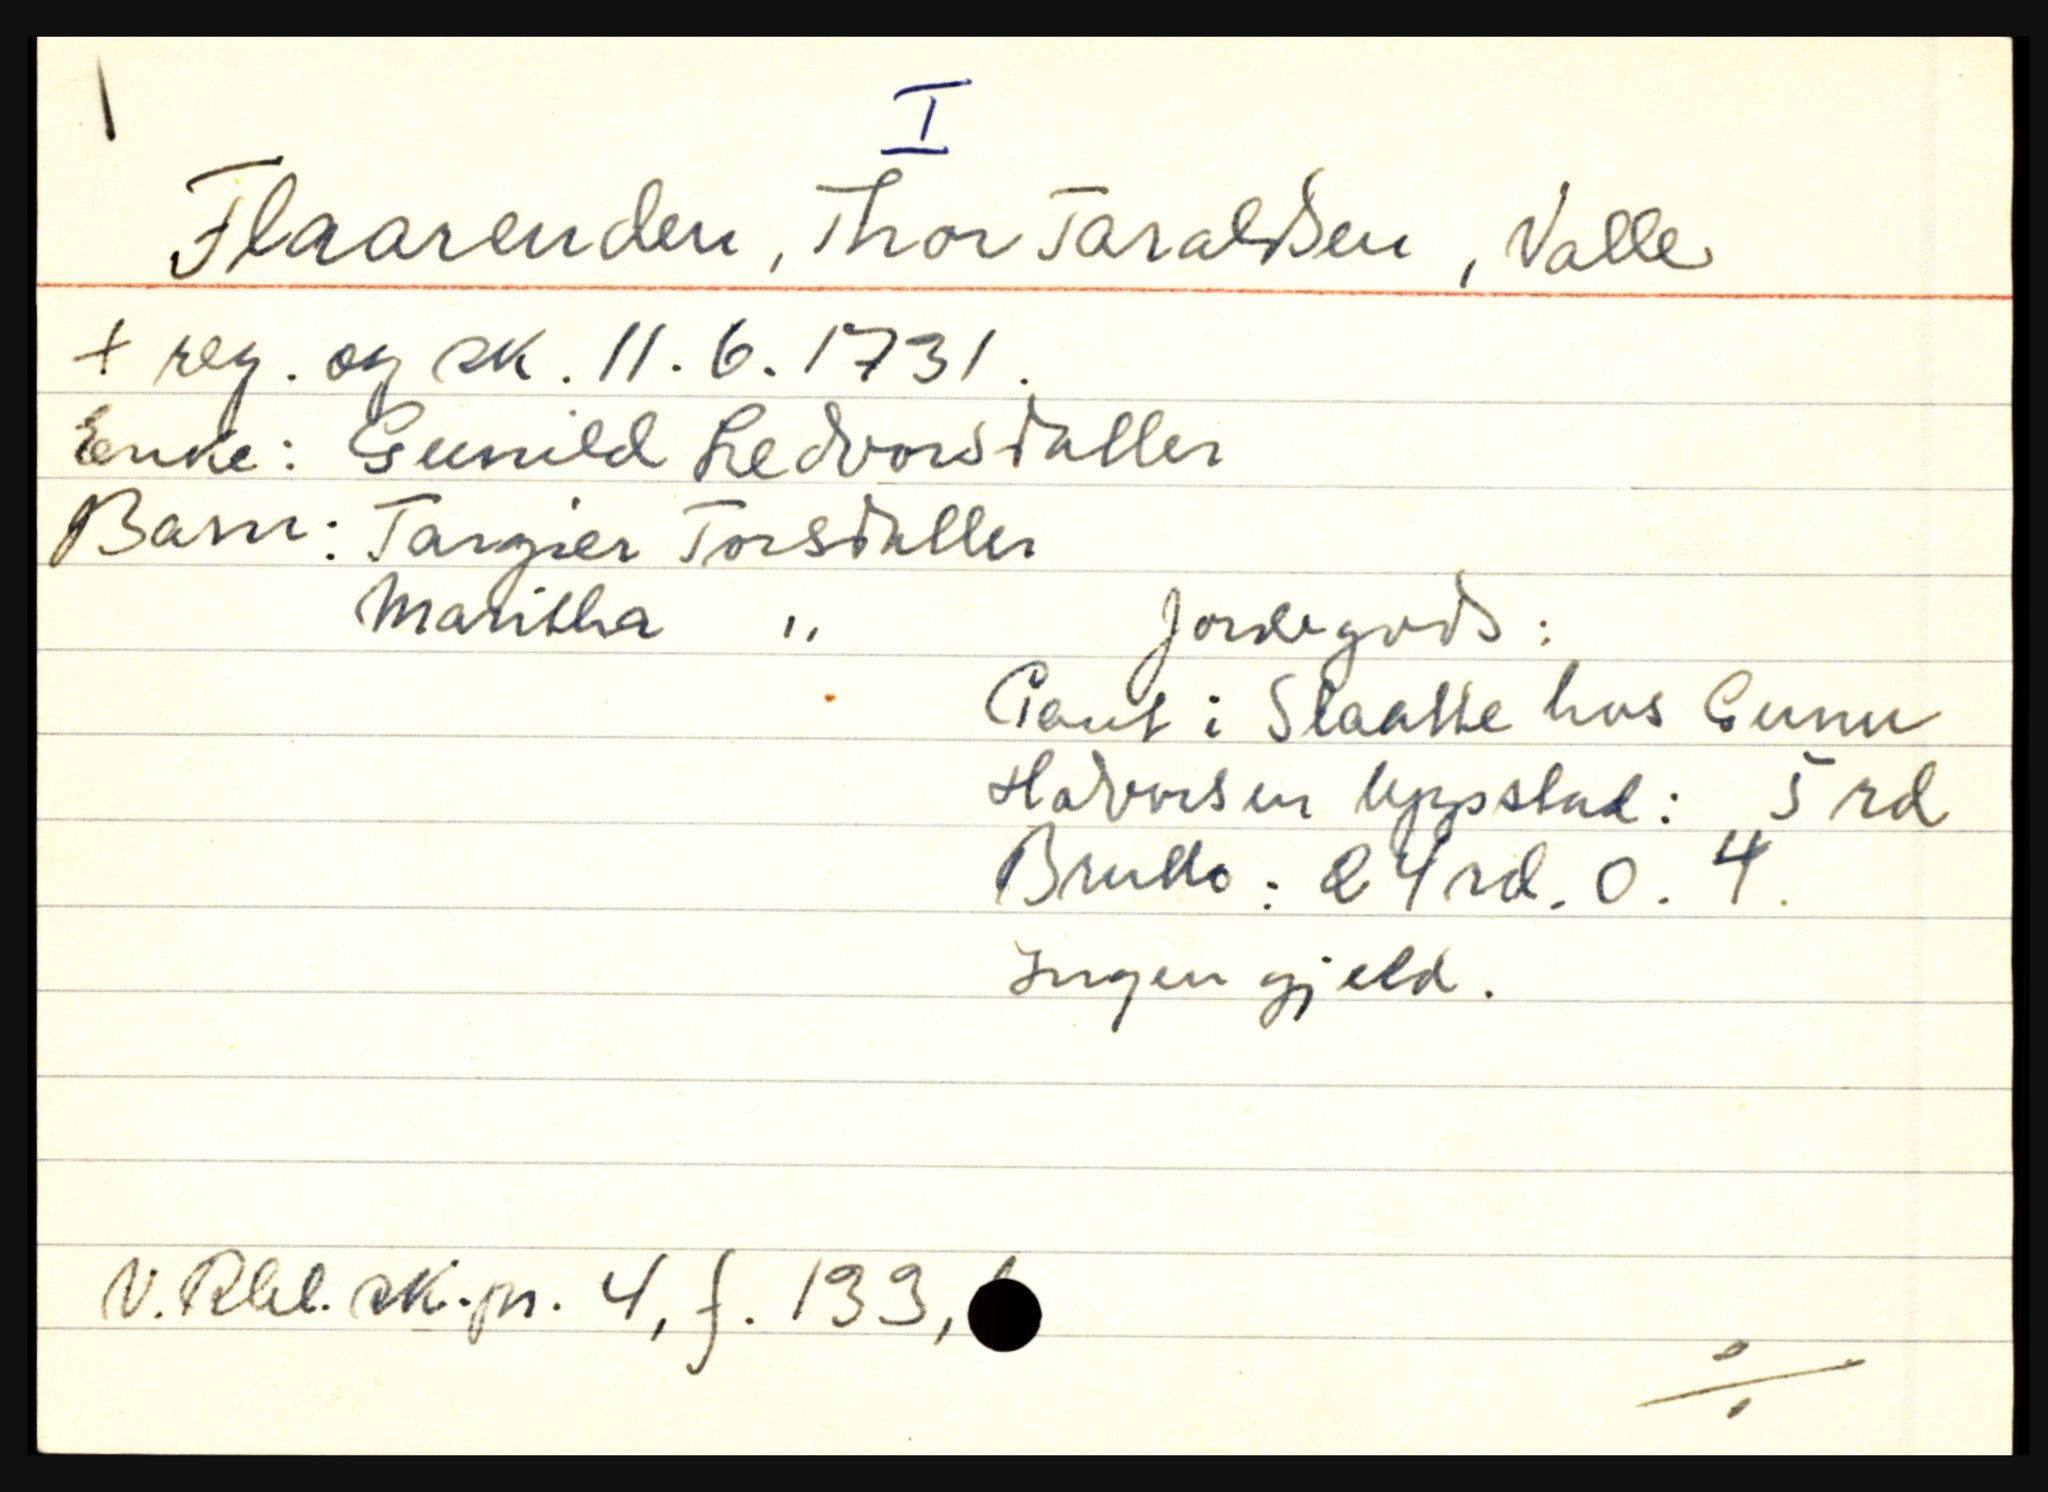 I
Flaarenden, Thor Taraldsen, Valle
+ reg. og sk. 11.6.1731.
Enke: Gunild Ledvorsdatter
Barn: Targier Torsdatter
Maritha "
Jordegods:
Pant i Slaatte hos Gunu
Hadvorsen Uppstad: 5 rd
Brutto: 24 rd. 0. 4.
Ingen gjeld.
V. Rbl. sk. pr. 4, f. 133,